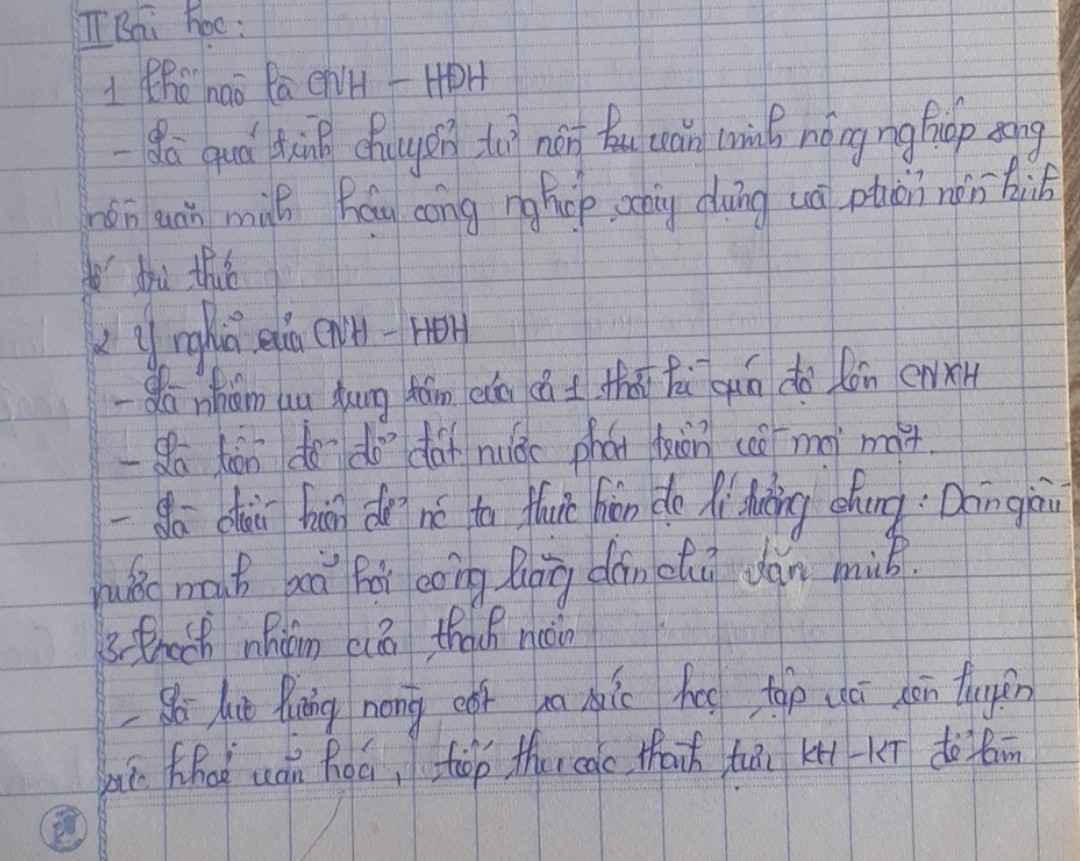 II Bài học:
1 thế nào là CNH - HĐH
- Là quá trình chuyển từ nền văn minh nông nghiệp sang
nền văn minh hậu công nghiệp xây dựng và ptriển nền kinh
tế tri thức
2 ý nghĩa của CNH - HĐH
- Là nhiệm vụ trung tâm của cả 1 thời kì quá độ lên CNXH
- Là tiền đề để đất nước phát triển về mọi mặt.
- Là điều kiện để nc ta thực hiện đc lí tưởng chung: Dân giàu
nước mạnh xã hội công bằng dân chủ văn minh.
3. trách nhiệm của thanh niên
- Là lực lượng nòng cốt ra sức học tập và rèn luyện
sức khoẻ văn hóa, tiếp thu các thành tựu KH-KT để làm